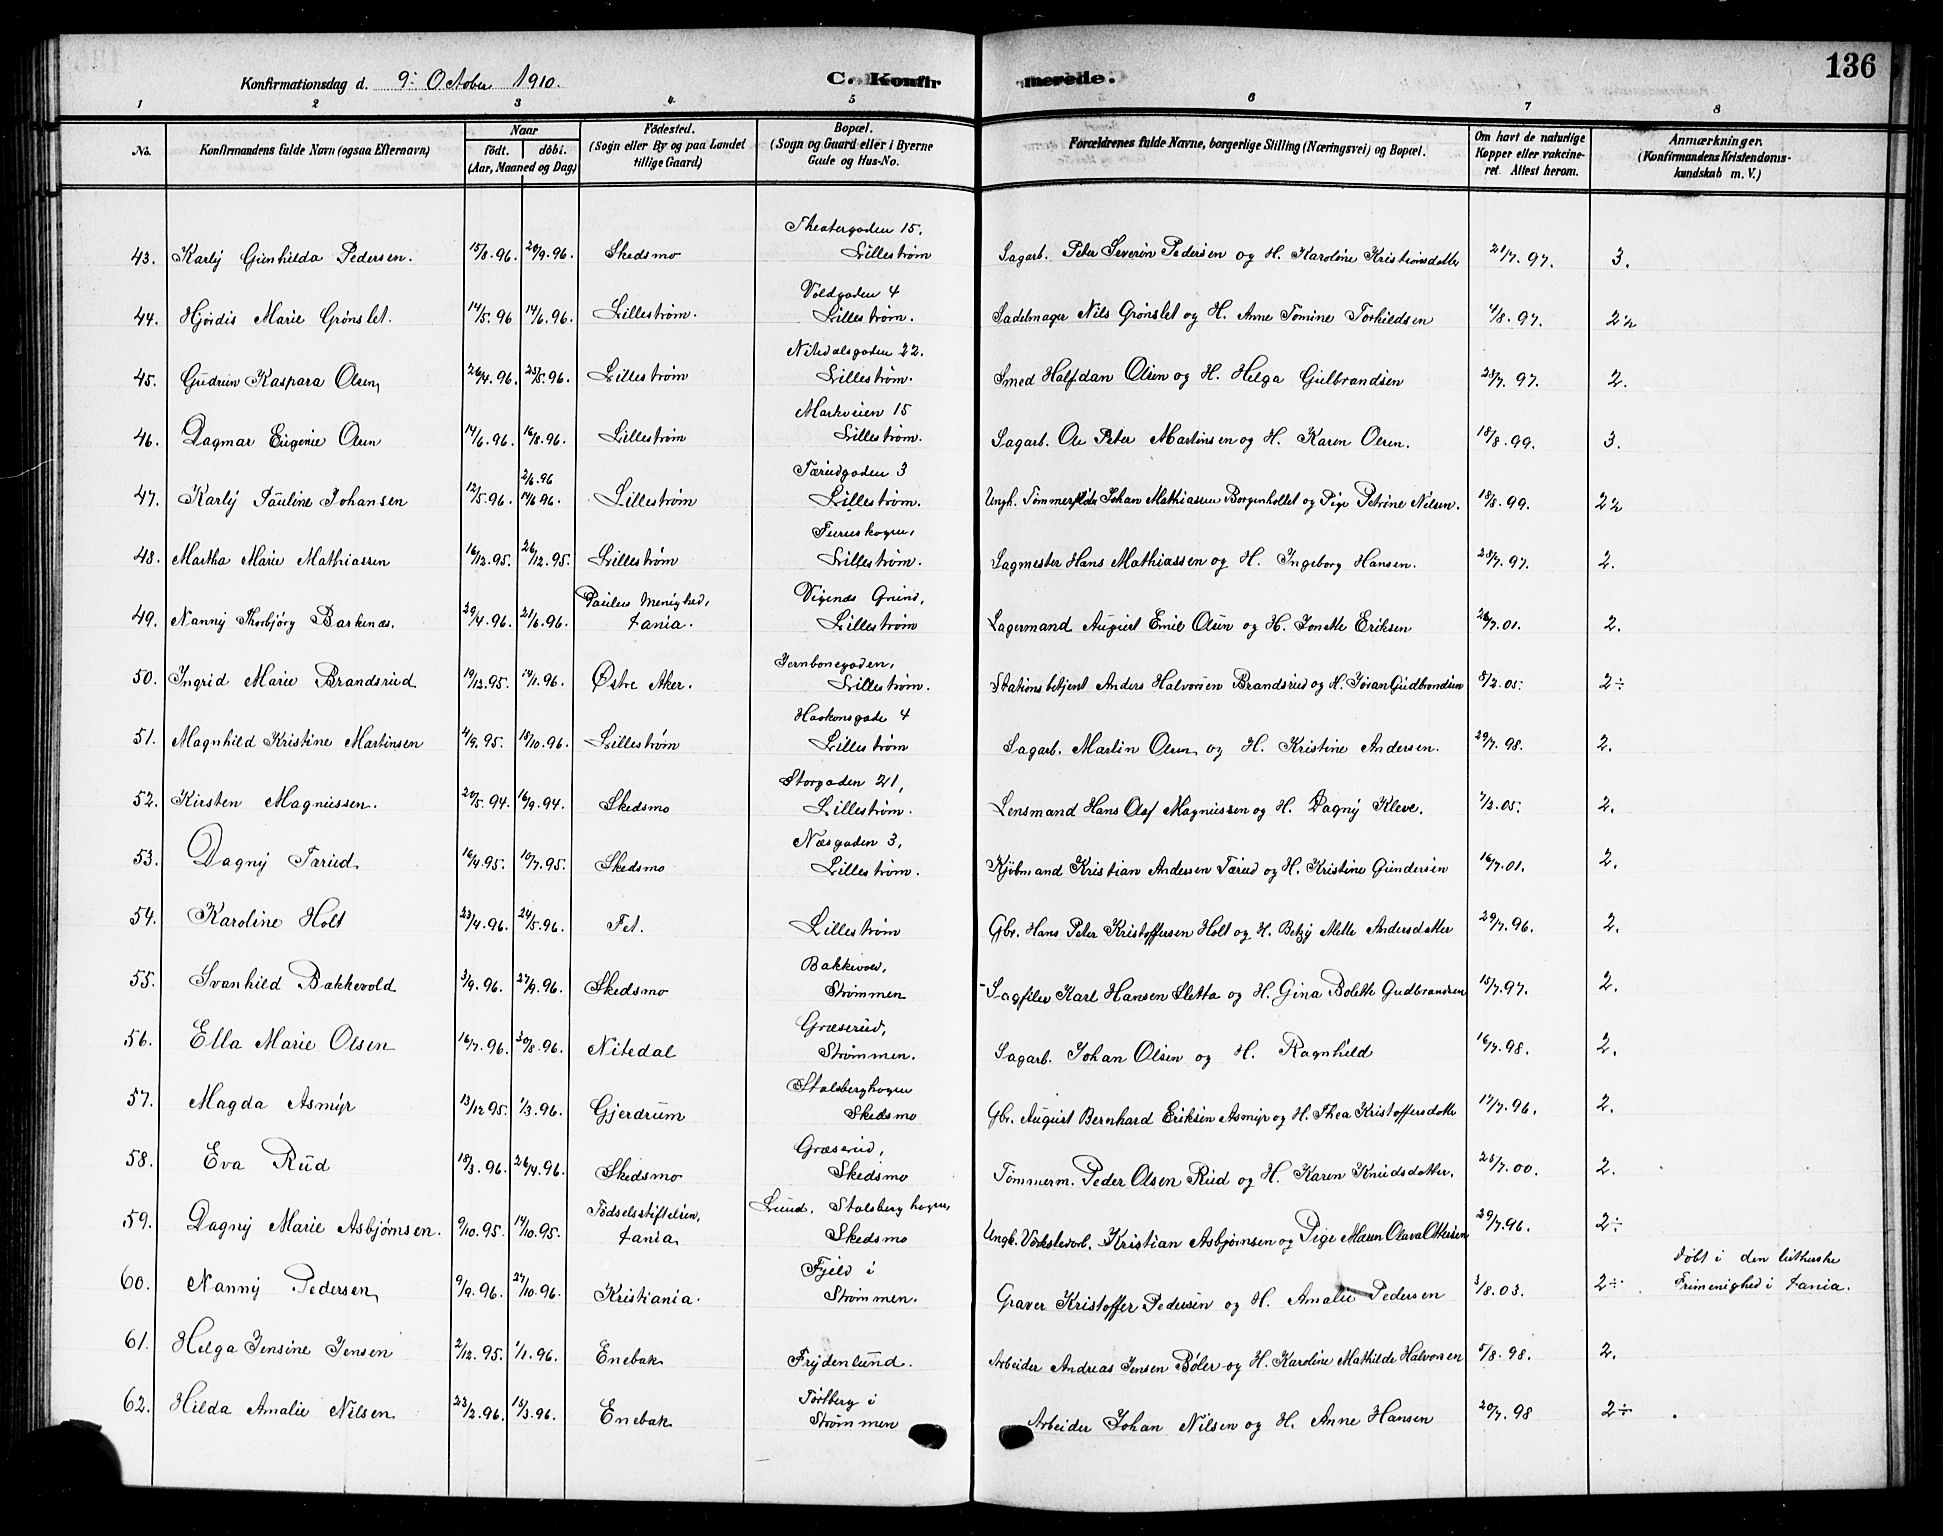 136
Konfirmationsdag d. 9: October 1910.
C. Konfirmerede.
1 2 3 4 5 6 7 8
No.
Konfirmandens fulde Navn (ogsaa Efternavn)
Naar
født. døbt.
(Aar, Maaned og Dag)
Fødested.
(Sogn eller By og paa Landet tillige Gaard)
Bopæl.
(Sogn og Gaard eller i Byerne Gade og Hus-No.
Forældrenes fulde Navne, borgerlige Stilling (Næringsvei) og Bopæl.
Om havt de naturlige Kopper eller vakcineret. Attest herom.
Anmærkninger.
(Konfirmandens Kristendomskundskab m. V.)
43. Karly Gunhilda Pedersen. 15/8.96. 20/9.96. Skedsmo Theatergaden 15, Lillestrøm Sagarb. Peter Severin Pedersen og H. Karoline Kristiansdatter 21/7.97. 3.
44. Hjørdis Marie Grønslet. 14/5.96 14/6.96. Lillestrøm. Voldgaden 4 Lillestrøm. Sadelmager Nils Grønslet og H. Anne Tomine Torhildsen 4/8.97. 2½
45. Gudrun Kaspara Olsen, 26/4.96. 25/5.96. Lillestrøm Nitedalsgaden 22. Lillestrøm. Smed Halfdan Olsen og H. Helga Gulbrandsen 28/7.97. 2.
46. Dagmar Eugenie Olsen 14/6.96. 16/8.96. Lillestrøm Markveien 15 Lillestrøm. Sagarb. Ole Peter Martinsen og H. Karen Olsen. 18/8.99. 3.
47. Karly Pauline Johansen 12/5.96. 2/6.96 14/6 96. Lillestrøm Tærudgaden 3 Lillestrøm. Ungk. Tømmerfløder Johan Mathiassen Borgenhollet og Pige Petrine Nilsen. 18/8.99. 2½
48. Martha Marie Mathiassen 16/12.95. 26/12.95. Lillestrøm Furuskogen, Lillestrøm. Sagmester Hans Mathiassen og H. Ingeborg Hansen. 28/7.97. 2.
49. Nanny Thorbjørg Barkenæs. 29/4.96. 21/6.96. Paulus Menighed, Xania. Vigenæs Grund, Lillestrøm Lagermand August Emil Olsen og H. Jonette Eriksen 26/7.01. 2.
50. Ingrid Marie Brandsrud 19/12.95. 14/1.96. Østre Aker. Jernbanegaden, Lillestrøm. Stationsbetjent Anders Halvorsen Brandsrud og H. Jøran Gudbrandsen 8/2.05. 2÷
51. Magnhild Kristine Martinsen 4/9.95. 18/10.96. Lillestrøm Haakonsgade 4 Lillestrøm Sagarb. Martin Olsen og H. Kristine Andersen. 29/7.98. 2.
52. Kirsten Magnussen. 20/5.94. 16/9.94. Skedsmo Storgaden 21, Lillestrøm. Lensmand Hans Olaf Magnussen og H. Dagny Kleve. 7/2.05. 2.
53. Dagny Tærud 16/4.95. 10/7.95. Skedsmo Næsgaden 3, Lillestrøm. Kjøbmand Kristian Andersen Tærud og H. Kristine Gundersen 16/7.01. 2.
54. Karoline Holt 23/4.96. 24/5.96. Fet. Lillestrøm Gbr. Hans Peter Kristoffersen Holt og H. Betzy Mette Andersdatter 29/7.96. 2.
55. Svanhild Bakkevold 3/9.96. 27/9.96. Skedsmo Bakkevold, Strømmen Sagfiler Karl Hansen Sletta og H. Gina Bolette Gudbrandsen 15/7.97. 2.
56. Ella Marie Olsen 16/7.96. 30/8.96. Nitedal Græserud, Strømmen. Sagarb. Johan Olsen og H. Ragnhild 16/7.98. 2.
57. Magda Asmyr 13/12.95. 1/3.96. Gjerdrum Stalsberghagen Skedsmo Gbr. August Bernhard Eriksen Asmyr og H. Thea Kristoffersdatter 17/7.96. 2.
58. Eva Rud 18/3.96. 26/4.96. Skedsmo Græserud, Skedsmo Tømmerm. Peder Olsen Rud og H. Karen Knudsdatter. 25/7.00. 2.
59. Dagny Marie Asbjørnsen. 9/10.95. 14/10.95. Fødselsstiftelsen, Xania Lund, Stalsberghagen, Skedsmo Ungk. Verkstedarb. Kristian Asbjørnsen og Pige Maren Olava Ottersen 29/7.96. 2÷
60. Nanny Pedersen 9/9.96. 27/10.96. Kristiania. Fjeld i Strømmen. Graver Kristoffer Pedersen og H. Amalie Pedersen 3/8.03. 2÷ Døbt i den lutherske Frimenighed i Xania.
61. Helga Jensine Jensen 2/12.95. 1/1.96. Enebak Frydenlund. Arbeider Andreas Jensen Bøler og H. Karoline Mathilde Halvorsen 5/8.98. 2.
62. Hilda Amalie Nilsen 23/2.96. 15/3.96. Enebak Tortberg i Strømmen Arbeider Johan Nilsen og H. Anne Hansen 20/7.98 2÷